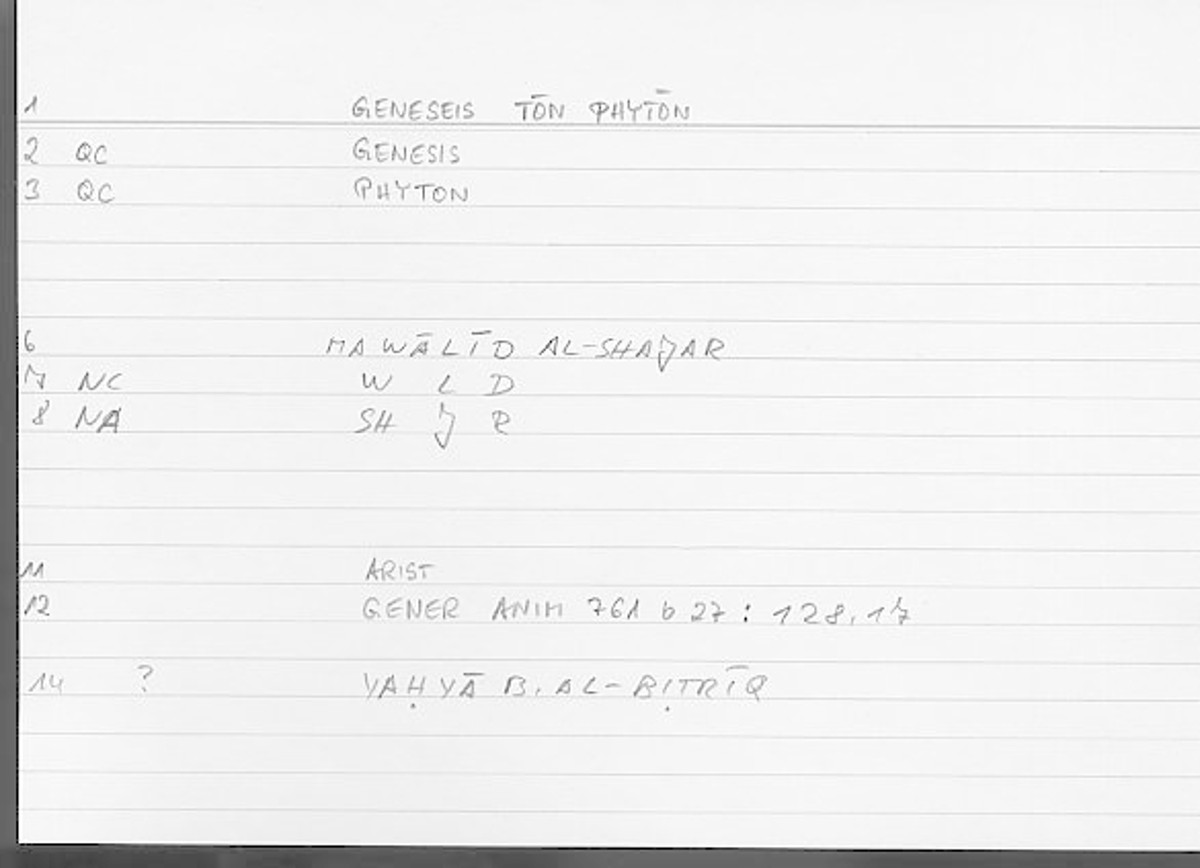 1 GENESEIS TŌN PHYTŌN
2 QC GENESIS
3 QC PHYTON
6 MAWĀLĪD AL-SHAJAR
7 NC W L D
8 NA SH J R
11 ARIST
12 GENER ANIM 761 b 27 : 128,17
14 ? YAḤYĀ B. AL-BIṬRĪQ